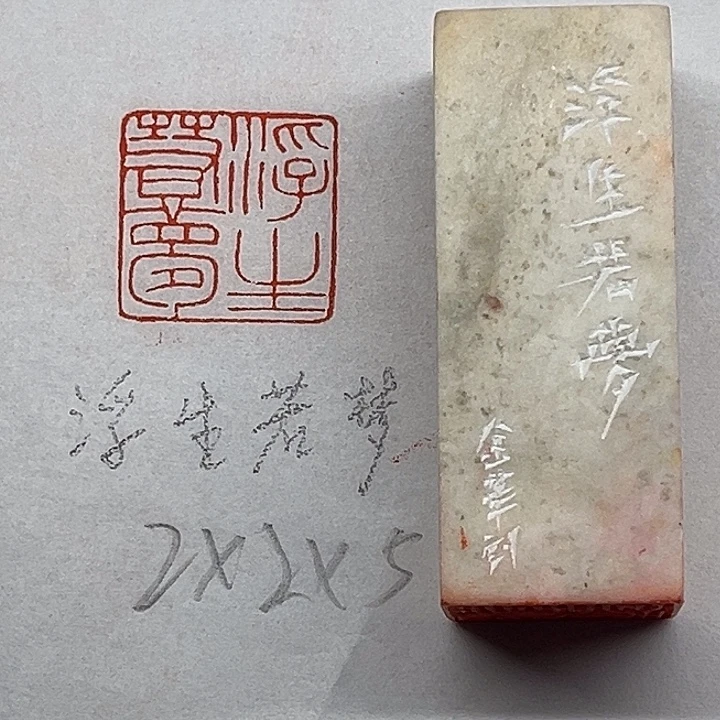 浮生若夢
浮生若夢
2X2X5
浮生若夢
金華刻